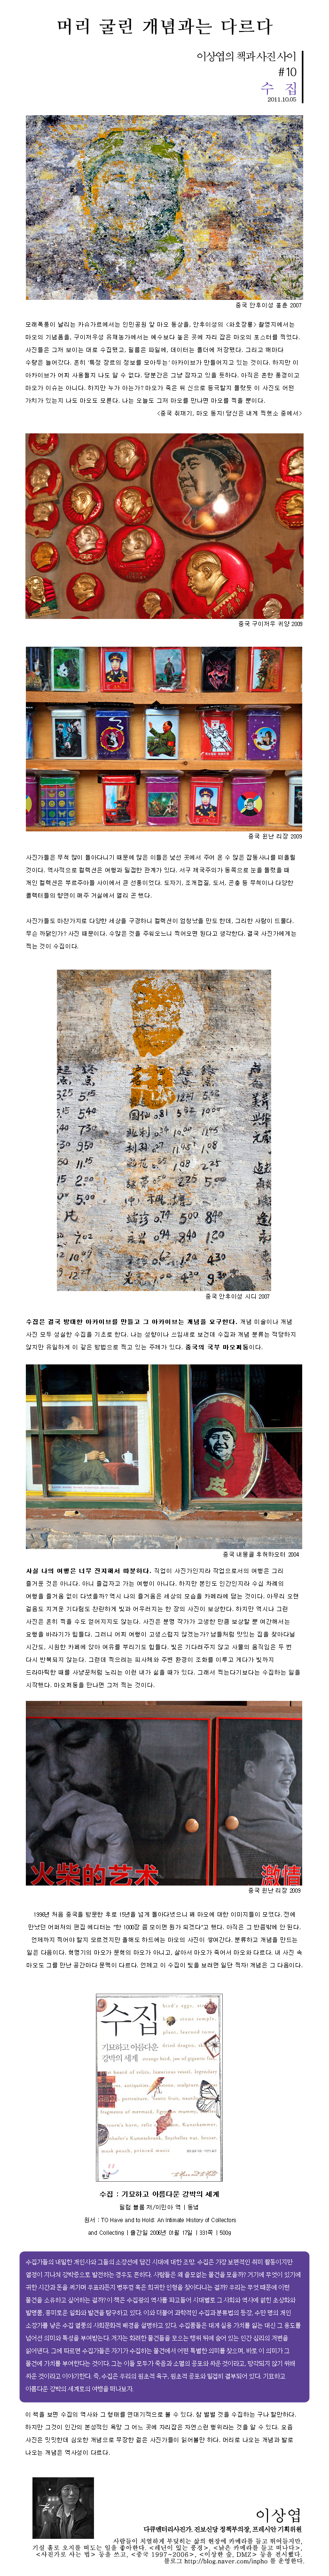 머리 굴린 개념과는 다르다
이상엽의 책과 사진 사이
#10
수 집
2011.10.05
중국 안후이성 홍춘 2007
모래폭풍이 날리는 카슈가르에서는 인민공원 앞 마오 동상을, 안후이성의 <와호장룡> 촬영지에서는
마오의 기념품을, 구이저우성 유채농가에서는 예수보다 높은 곳에 자리 잡은 마오의 포스터를 찍었다.
사진들은 그저 보이는 대로 수집했고, 필름은 파일에, 데이터는 폴더에 저장됐다. 그리고 해마다
수량은 늘어갔다. 흔히 '특정 장르의 정보를 모아두는' 아카이브가 만들어지고 있는 것이다. 하지만 이
아카이브가 어찌 사용될지 나도 알 수 없다. 당분간은 그냥 잠자고 있을 듯하다. 아직은 흔한 풍경이고
마오가 이슈는 아니다. 하지만 누가 아는가? 마오가 죽은 뒤 신으로 등극할지 몰랐듯 이 사진도 어떤
가치가 있는지 나도 마오도 모른다. 나는 오늘도 그저 마오를 만나면 마오를 찍을 뿐이다.
<중국 취재기, 마오 동지! 당신은 내게 찍혔소 중에서>
중국 구이저우 귀양 2009
중국 윈난 리장 2009
사진가들은 무척 많이 돌아다니기 때문에 많은 이들은 낯선 곳에서 주어 온 수 많은 잡동사니를 떠올릴
것이다. 역사적으로 컬렉션은 여행과 밀접한 관계가 있다. 서구 제국주의가 동쪽으로 눈을 돌렸을 때
개인 컬렉션은 부르주아들 사이에서 큰 선풍이었다. 도자기, 조개껍질, 도서, 곤충 등 무척이나 다양한
콜렉터들의 향연이 매주 거실에서 열리곤 했다.
사진가들도 마찬가지로 다양한 세상을 구경하니 컬렉션이 엄청났을 만도 한데, 그러한 사람이 드물다.
무슨 까닭인가? 사진 때문이다. 수많은 것을 주워오느니 찍어오면 된다고 생각한다. 결국 사진가에게는
찍는 것이 수집이다.
중국 안후이성 시디 2007
수집은 결국 방대한 아카이브를 만들고 그 아카이브는 개념을 요구한다. 개념 미술이나 개념
사진 모두 성실한 수집을 기초로 한다. 나는 성향이나 스킬새로 보건데 수집과 개념 분류는 적당하지
않지만 유일하게 이 같은 방법으로 찍고 있는 주제가 있다. 중국의 국부 마오쩌둥이다.
중국 내몽골 후허하오터 2004
사실 나의 여행은 너무 진지해서 따분하다. 직업이 사진가인지라 작업으로서의 여행은 그리
즐거운 것은 아니다. 아니 즐겁자고 가는 여행이 아니다. 하지만 본인도 인간인지라 수십 차례의
여행을 즐거움 없이 다녔을까? 역시 나의 즐거움은 세상의 모습을 카메라에 담는 것이다. 아무리 오랜
걸음도 지겨운 기다림도 찬란하게 빛과 어우러지는 한 장의 사진이 보상한다. 하지만 역시나 그런
사진은 흔히 찍을 수도 얻어지지도 않는다. 사진은 분명 작가가 고생한 만큼 보상할 뿐 여간해서는
요행을 바라기가 힘들다. 그러니 어찌 여행이 고생스럽지 않겠는가? 남들처럼 맛있는 집을 찾아다닐
시간도, 시원한 카페에 앉아 여유를 부리기도 힘들다. 빛은 기다려주지 않고 사물의 움직임은 두 번
다시 반복되지 않는다. 그런데 찍으려는 피사체와 주변 환경이 조화를 이루고 게다가 빛까지
드라마틱한 때를 사냥꾼처럼 노리는 이런 내가 싫을 때가 있다. 그래서 찍는다기보다는 수집하는 일을
시작했다. 마오쩌둥을 만나면 그저 찍는 것이다.
火柴的艺术
激情
중국 윈난 리장 2009
1998년 처음 중국을 방문한 후로 15년을 넘게 돌아다녔으니 꽤 마오에 대한 이미지들이 모였다. 전에
만났던 어쩌저의 편집 에디터는 "한 1000장 쯤 모이면 뭔가 되겠다"고 했다. 아직은 그 반쯤밖에 안 된다.
언제까지 찍어야 할지 모르겠지만 올해도 하드에는 마오의 사진이 쌓여간다. 분류하고 개념을 만드는
일은 다음이다. 혁명기의 마오가 문혁의 마오가 아니고, 살아서 마오가 죽어서 마오와 다르다. 내 사진 속
마오도 그를 만난 공간마다 문맥이 다르다. 언제고 이 수집이 빛을 보려면 일단 찍자! 개념은 그 다음이다.
수집
기묘하고 아름다운
강박의 세계
수집 : 기묘하고 아름다운 강박의 세계
필립 블롬 저/이민아 역 | 동녘
원서 : TO Have and to Hold: An Intimate History of Collectors
and Collecting | 출간일 2006년 01월 17일 | 331쪽 | 593g
수집가들의 내밀한 개인사와 그들의 소장선에 담긴 시대에 대한 조망. 수집은 가장 보편적인 취미 활동이지만
열정이 지나쳐 강박증으로 발전하는 경우도 흔하다. 사람들은 왜 쓸모없는 물건을 모을까? 거기에 무엇이 있기에
귀한 시간과 돈을 써가며 우표라든지 병뚜껑 혹은 희귀한 인형을 찾아다니는 걸까? 우리는 무엇 때문에 이런
물건을 소유하고 싶어하는 걸까? 이 책은 수집광의 역사를 파고들어 시대별로 그 사회와 역사에 얽힌 초상화와
발명품, 흥미로운 일화와 발견을 탐구하고 있다. 이와 더불어 과학적인 수집과 분류법의 등장, 수만 명의 개인
소장가를 낳은 수집 열풍의 사회문화적 배경을 설명하고 있다. 수집품들은 대개 실용 가치를 잃는 대신 그 용도를
넘어선 의미와 특성을 부여받는다. 저자는 화려한 물건들을 모으는 행위 뒤에 숨어 있는 인간 심리의 저변을
읽어낸다. 그에 따르면 수집가들은 자기가 수집하는 물건에서 어떤 특별한 의미를 찾으며, 바로 이 의미가 그
물건에 가치를 부여한다는 것이다. 그는 이들 모두가 죽음과 소멸의 공포와 싸운 것이라고, 망각되지 않기 위해
싸운 것이라고 이야기한다. 즉, 수집은 우리의 원초적 욕구, 원초적 공포와 밀접히 결부되어 있다. 기묘하고
아름다운 강박의 세계로의 여행을 떠나보자.
이 책을 보면 수집의 역사와 그 형태를 연대기적으로 볼 수 있다. 참 별별 것을 수집하는 구나 할만하다.
하지만 그것이 인간의 본성적인 욕망 그 어느 곳에 자리잡은 자연스런 행위라는 것을 알 수 있다. 요즘
사진은 밋밋한데 심오한 개념으로 무장한 젊은 사진가들이 읽어볼만 하다. 머리로 나오는 개념과 발로
나오는 개념은 역사성이 다르다.
이상엽
다큐멘터리사진가. 진보신당 정책부의장, 프레시안 기획위원
사람들이 치열하게 부딪히는 삶의 현장에 카메라를 들고 뛰어들지만,
기실 홀로 오지를 떠도는 일을 좋아한다. <레닌이 있는 풍경>, <낡은 카메라를 들고 떠나다>,
<사진가로 사는 법> 등을 쓰고, <중국 1997-2006>, <이상한 숲, DMZ> 등을 전시했다.
블로그 http://blog.naver.com/inpho 를 운영한다.